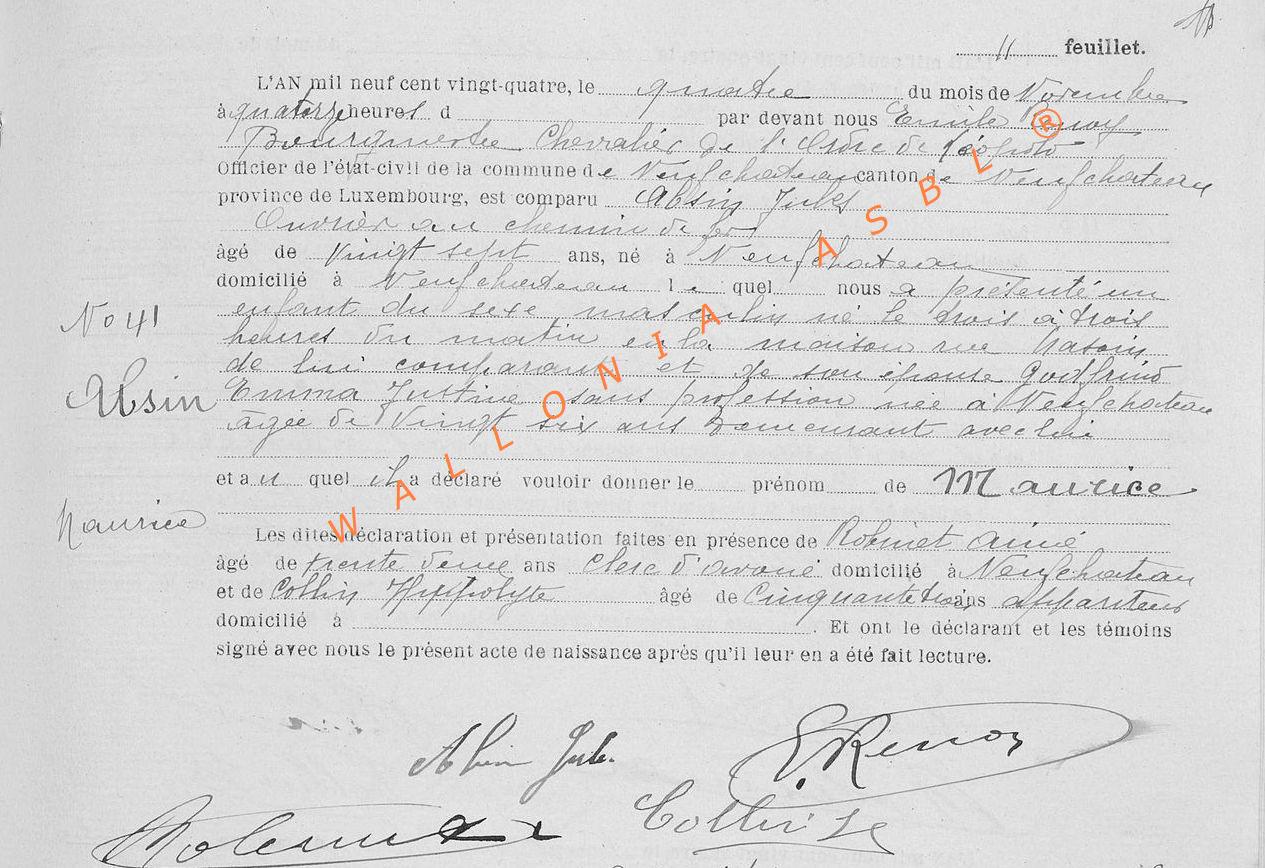 11 feuillet.
L'AN mil neuf cent vingt-quatre, le quatre du mois de Novembre
à quatorze heures d par devant nous Emile Renoy
Bourgmestre Chevalier de l'Ordre de Léopold
Officier de l'état-civil de la commune de Neufchateau canton de Neufchateau
province de Luxembourg, est comparu Absin Jules
Ouvrier au chemin de fer
âgé de vingt sept ans, né à Neufchateau
domicilié à Neufchateau le quel nous a présenté un
enfant du sexe masculin né le trois à trois
N° 41
heures du matin en la maison rue
de lui comparant et de son épouse Godfrind
Absin
Emma Justine sans profession née à Neufchateau
âgée de Vingt six ans demeurant avec lui
et au quel il a déclaré vouloir donner le prénom de Maurice
Maurice
Les dites déclaration et présentation faites en présence de Robinet Aimé
âgé de trente deux ans Clerc d'avoué domicilié à Neufchateau
et de Collin Hippolyte âgé de Cinquante trois ans appariteur
domicilié à . Et ont le déclarant et les témoins
signé avec nous le présent acte de naissance après qu'il leur en a été fait lecture.
WALLONIA ASBL ®
Absin Jules
E Renoy
Collin